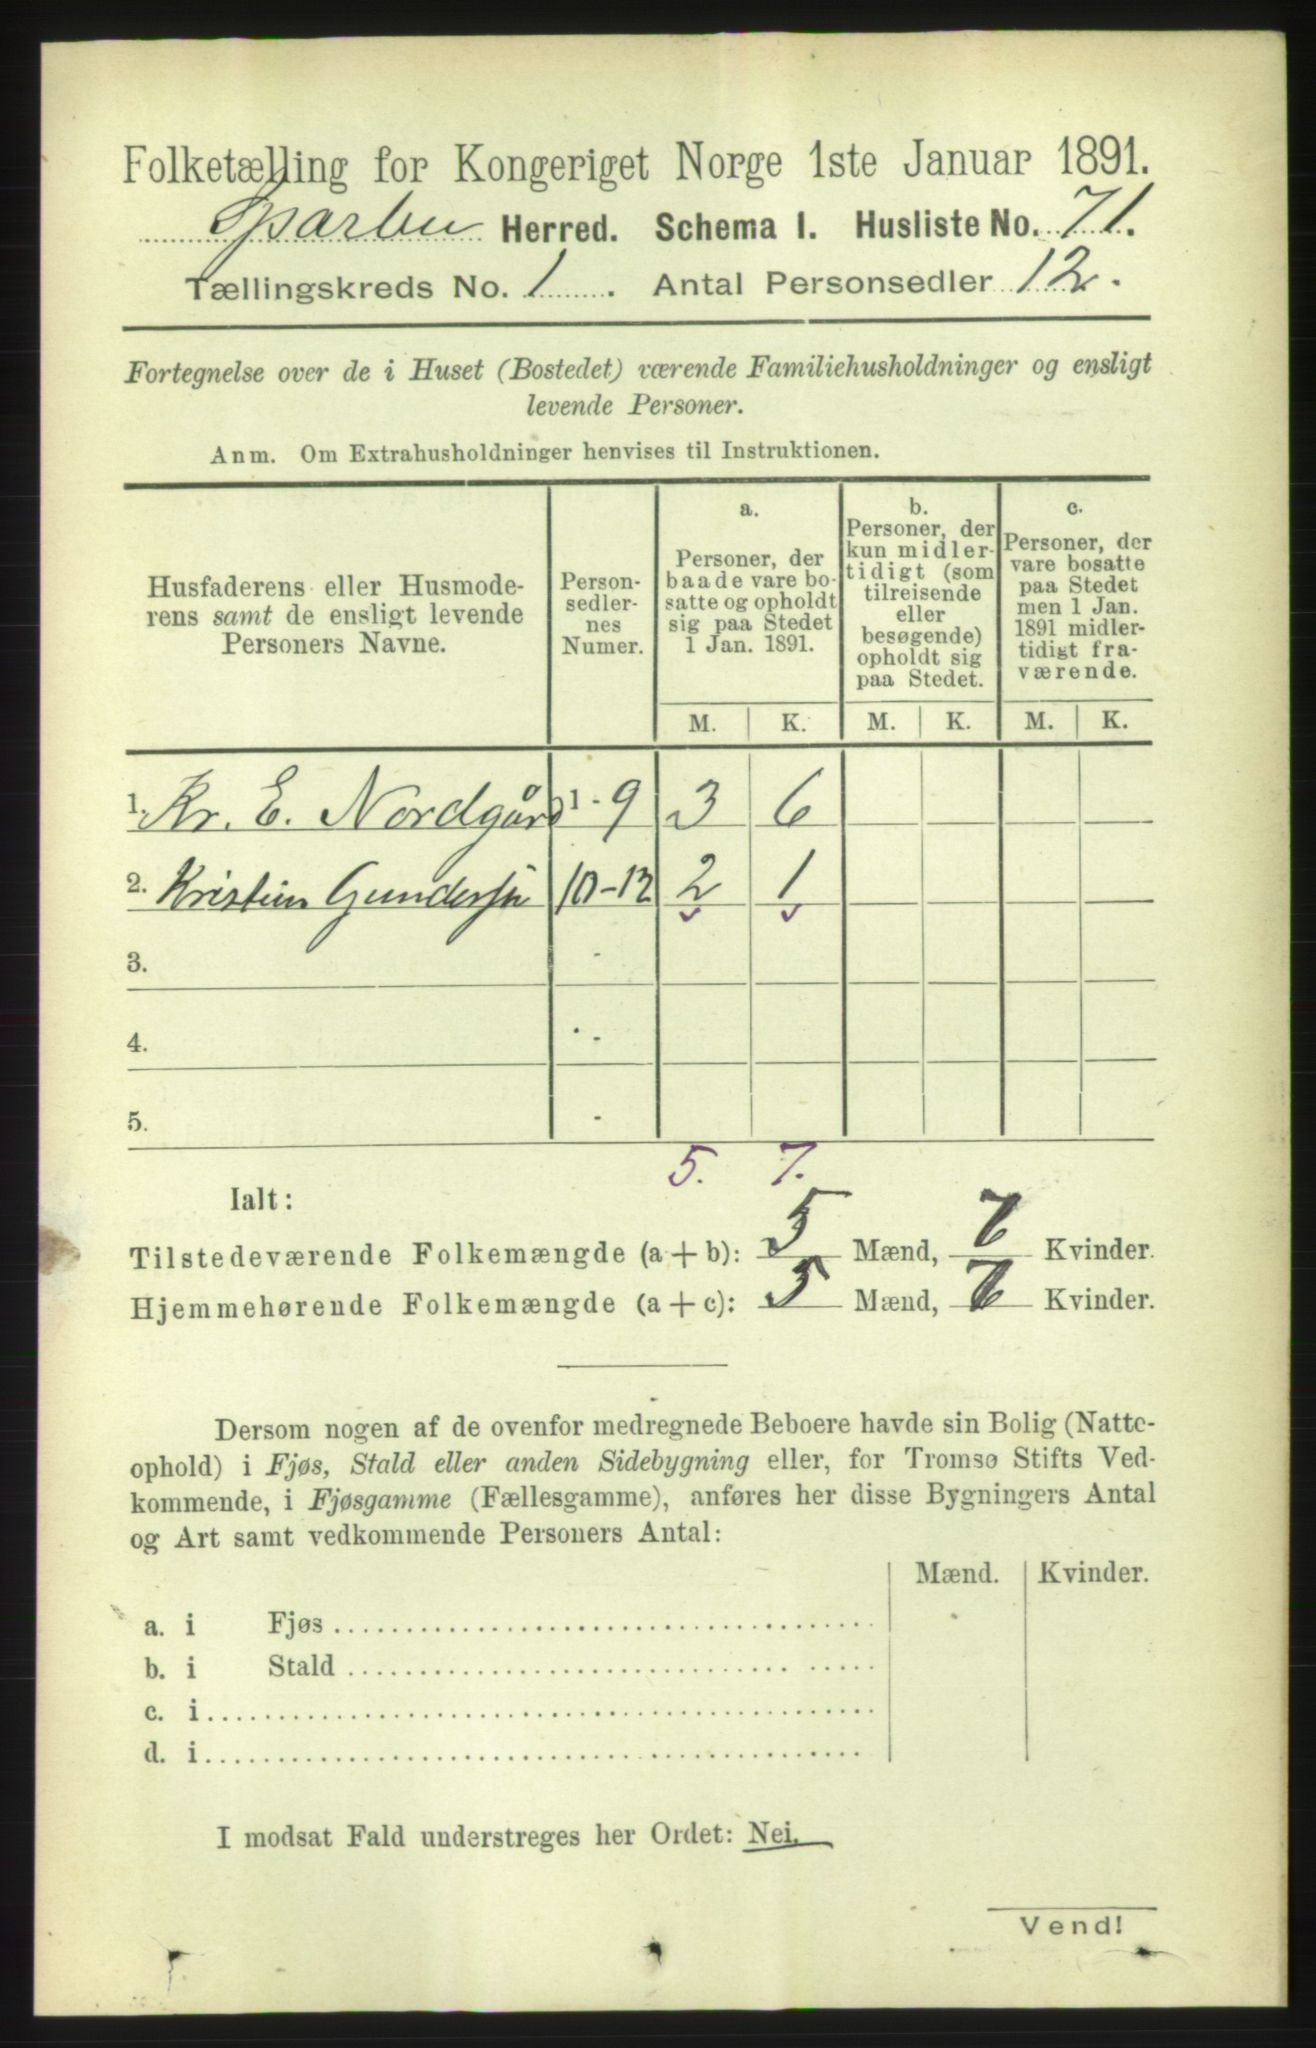 Folketælling for Kongeriget Norge 1ste Januar 1891.
Sparbu Herred. Schema I. Husliste No. 71.
Tællingskreds No. 1. Antal Personsedler 12.
Fortegnelse over de i Huset (Bostedet) værende Familiehusholdninger og ensligt
levende Personer.
Anm. Om Extrahusholdninger henvises til Instruktionen.
Husfaderens eller Husmode-
rens samt de ensligt levende
Personers Navne.
Person-
sedler-
nes
Numer.
a.
Personer, der
baade vare bo-
satte og opholdt
sig paa Stedet
1 Jan. 1891.
b.
Personer, der
kun midler-
tidigt (som
tilreisende
eller
besøgende)
opholdt sig
paa Stedet.
c.
Personer, der
vare bosatte
paa Stedet
men 1 Jan.
1891 midler-
tidigt fra-
værende.
M. K. M. K. M. K.
1. Kr. E. Nordgård 1-9 3 6
2. Kristian Gundersen 10-12 2 1
3. -
4. -
5. -
5. 7.
Ialt:
Tilstedeværende Folkemængde (a + b): 5 Mænd, 7 Kvinder.
Hjemmehørende Folkemængde (a + c): 5 Mænd, 7 Kvinder.
Dersom nogen af de ovenfor medregnede Beboere havde sin Bolig (Natte-
ophold) i Fjøs, Stald eller anden Sidebygning eller, for Tromsø Stifts Ved-
kommende, i Fjøsgamme (Fællesgamme), anføres her disse Bygningers Antal
og Art samt vedkommende Personers Antal:
Mænd. Kvinder.
a. i Fjøs
b. i Stald
c. i
d. i
I modsat Fald understreges her Ordet: Nei.
Vend!